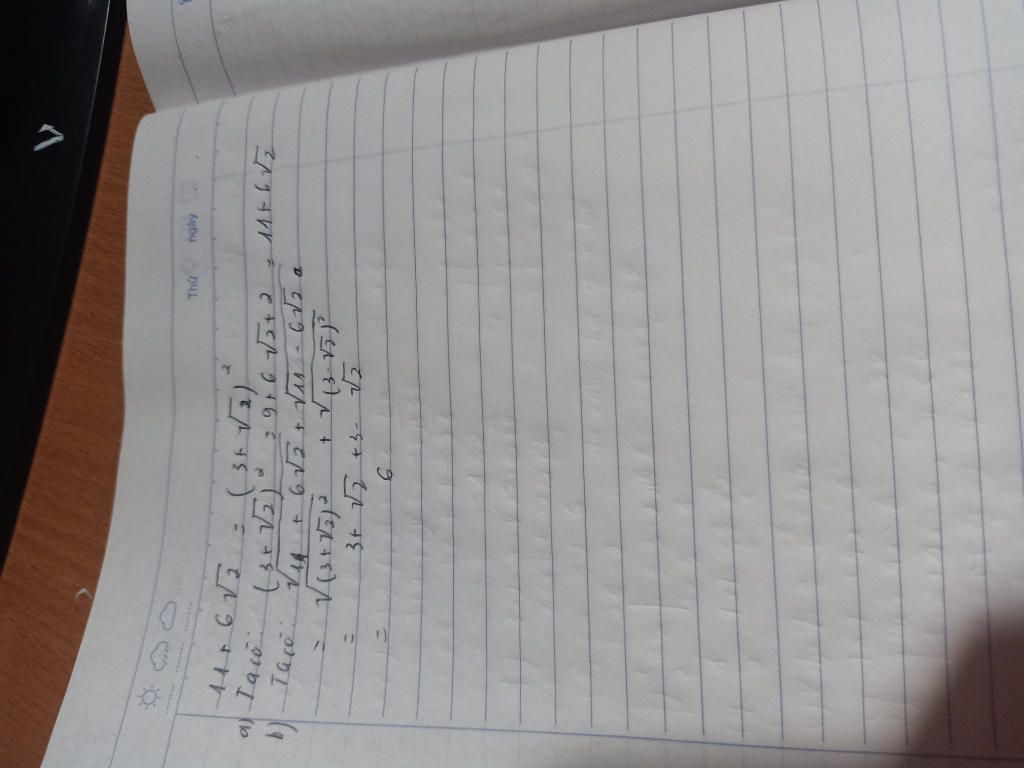 Thứ ngày
11 + 6√2 = (3+√2)²
a) Ta có: (3+√2)² = 9 + 6√2 + 2 = 11 + 6√2
b) Ta có: √11 + 6√2 + √11 - 6√2
= √(3+√2)² + √(3-√2)²
= 3 + √2 + 3 - √2
= 6